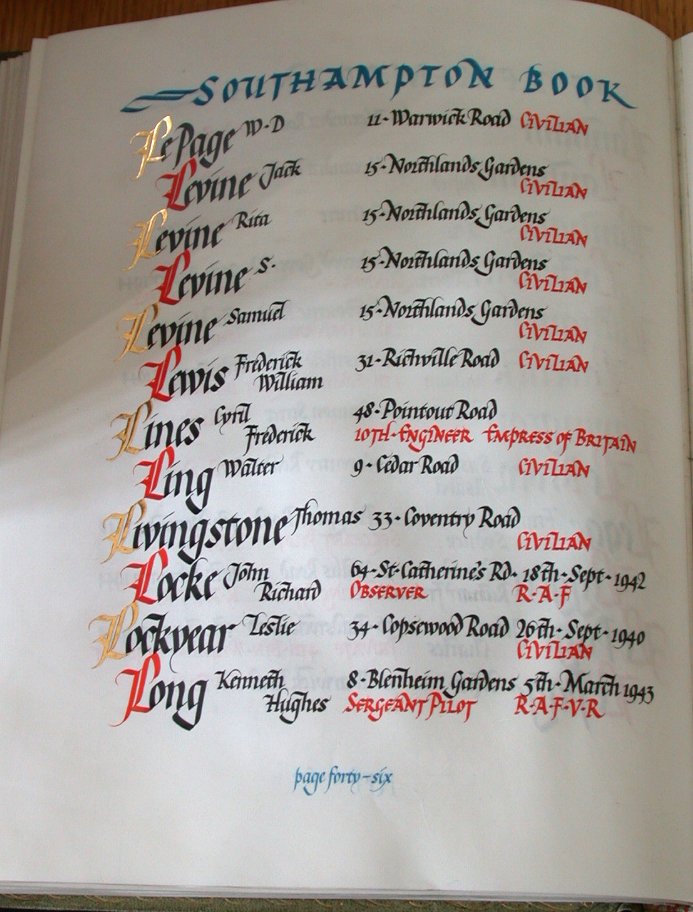 SOUTHAMPTON BOOK
LePage W·D 11·Warwick Road CIVILIAN
Levine Jack 15·Northlands Gardens
CIVILIAN
Levine Rita 15·Northlands Gardens
CIVILIAN
Levine S· 15·Northlands Gardens
CIVILIAN
Levine Samuel 15·Northlands Gardens
CIVILIAN
Lewis Frederick 31·Richville Road CIVILIAN
William
Lines Cyril 48·Pointout Road
Frederick 10TH·ENGINEER EMPRESS OF BRITAIN
Ling Walter 9·Cedar Road CIVILIAN
Livingstone Thomas 33·Coventry Road
CIVILIAN
Locke John 64·St·Catherine's Rd· 18th·Sept·1942
Richard OBSERVER R·A·F
Lockyear Leslie 34·Copsewood Road 26th·Sept·1940
CIVILIAN
Long Kenneth 8·Blenheim Gardens 5th·March 1943
Hughes SERGEANT PILOT R·A·F·V·R
page forty-six